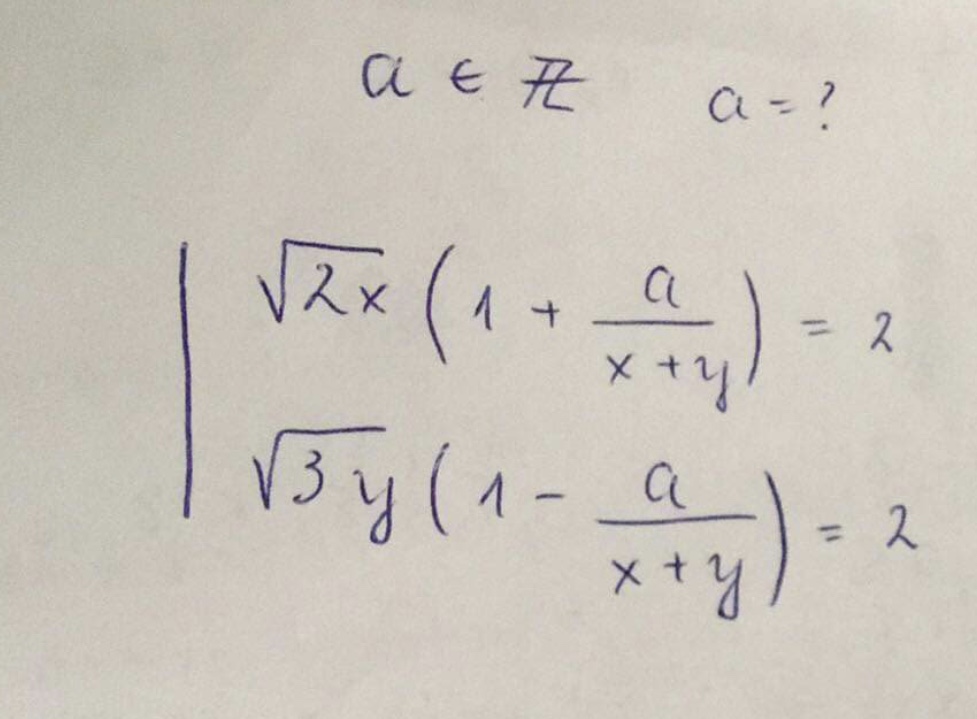 a ∈ ℤ a = ?
√2x (1 + a/(x + y)) = 2
√3y (1 - a/(x + y)) = 2